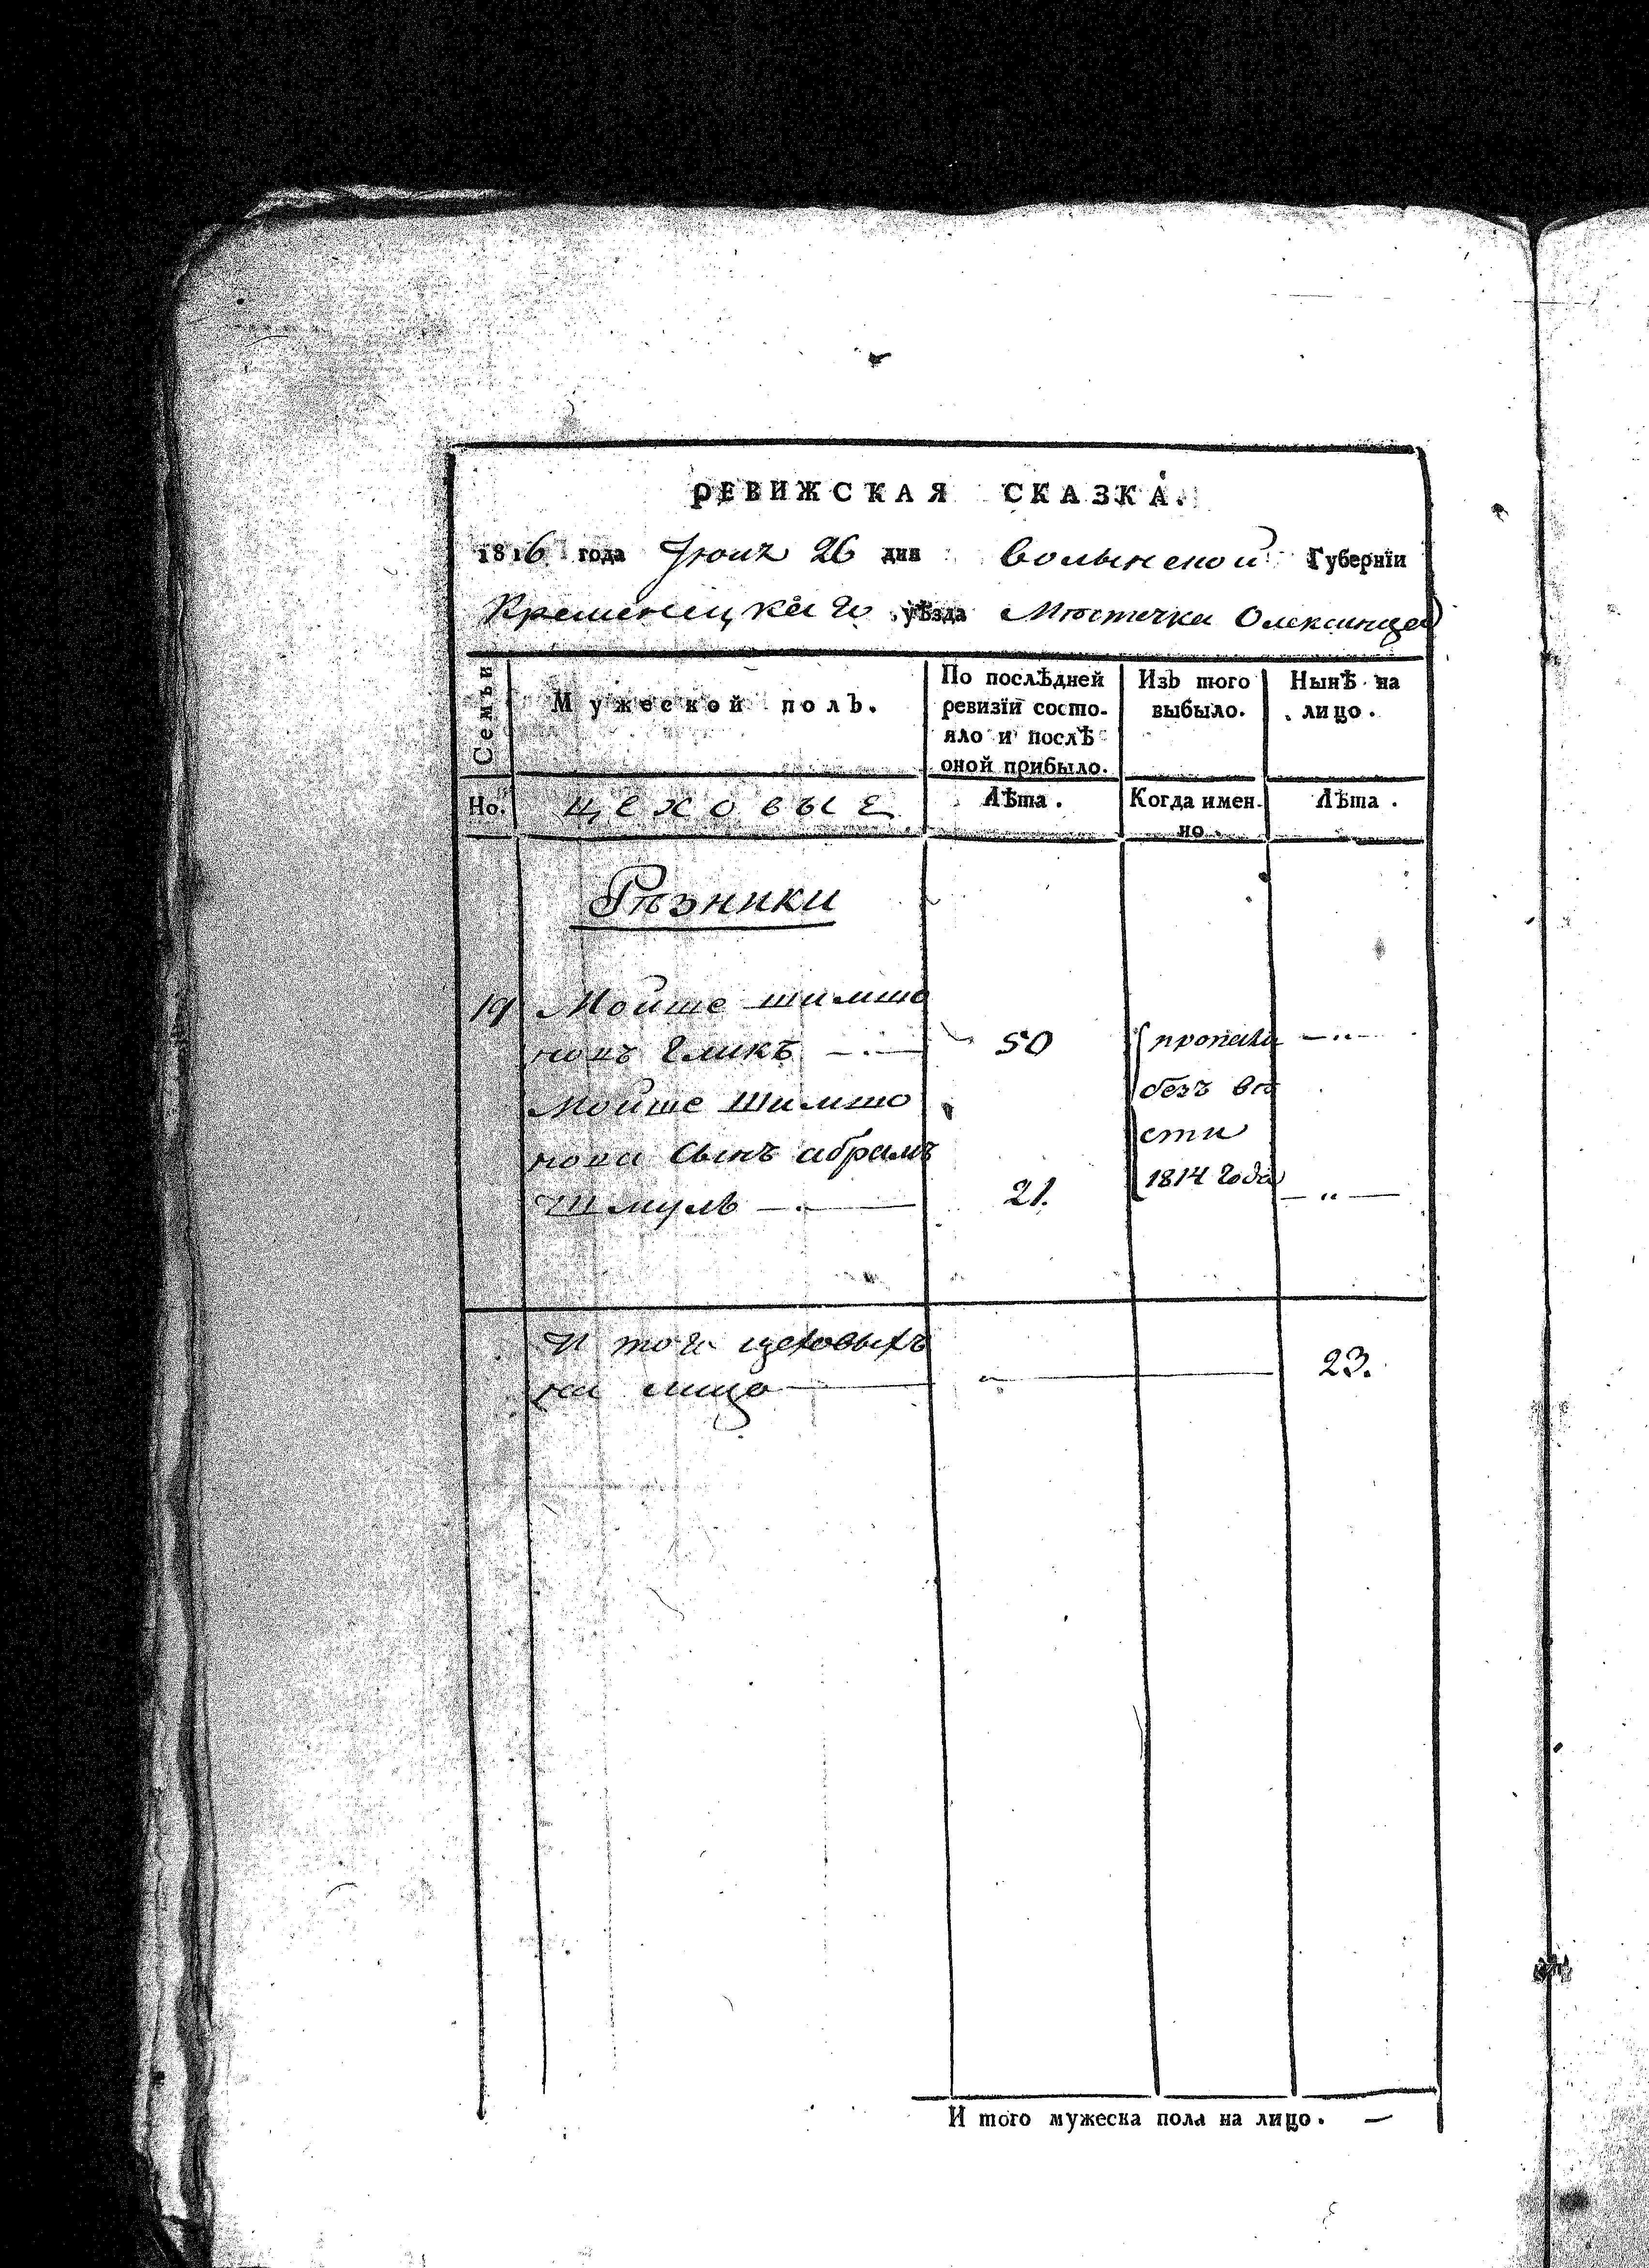 РЕВИЖСКАЯ СКАЗКА.
1816 года Іюня 26 дня Волынской Губерніи
Кременецкаго уѣзда Мѣстечка Олексинца
Семьи
Мужеской полъ.
По послѣдней ревизіи состояло и послѣ оной прибыло.
Изъ того выбыло.
Нынѣ на лицо.
Но.
цеховые
Лѣта.
Когда именно.
Лѣта.
Рѣзники
19 Мойше шимшо
новъ Гликъ 50 пропали
Мойше Шимшо безъ вѣ
нова сынъ абрамъ сти
Шмуль 21. 1814 года
И того цеховыхъ
на лицо 23.
И того мужеска пола на лицо. —